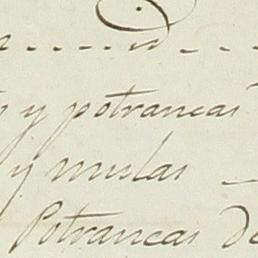 id
y potrancas
y mulas
Potrancas de